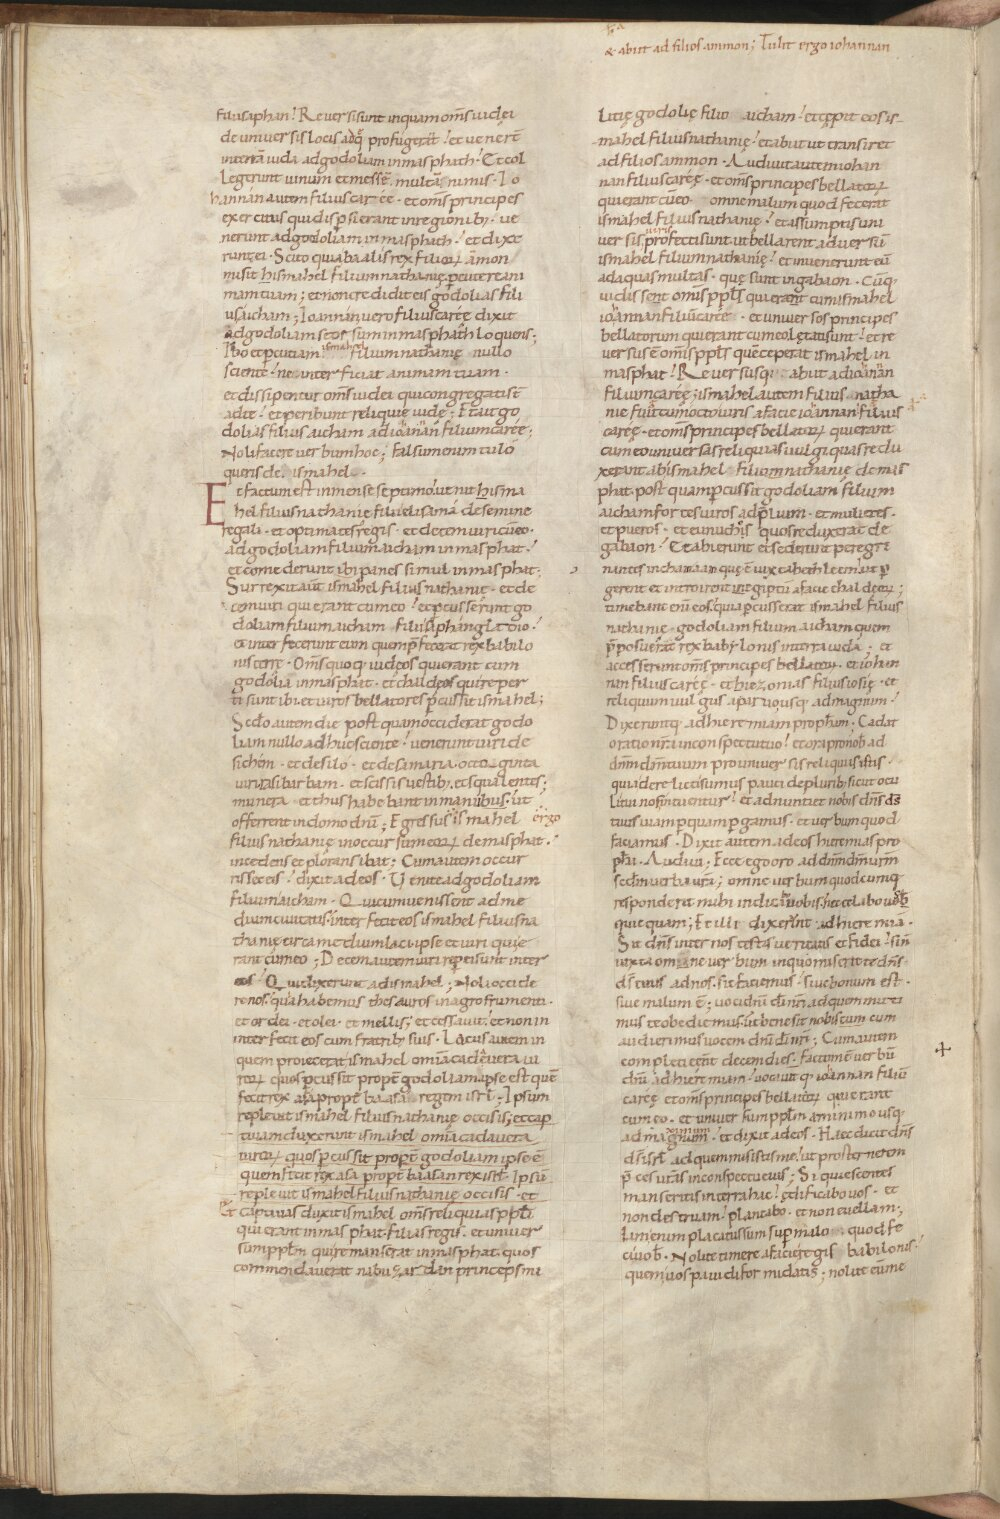 & abiit ad filios ammon; Tulit ergo iohannan
filius iphan! Reuersi sunt inquam om̄s iudei
de uniuersis locis ad q̄ profugerāt! et uenerē
in terrā iuda ad godoliam in masphath! Et col
legerunt uinum et messē multā nimis. Io
hannan autem filius careę. et om̄s principes
exercitus qui dispersi erant in regionib;. ue
nerunt ad godoliam in masphath! et dixe
runt ei. Scito quia baalis rex filioꝝ āmon
misit hismahel filium nathanię ꝑcutere ani
mam tuam; et non credidit eis godolias fili
us aicham; Ioannan uero filius careę dixit
ad godoliam seorsum in masphath loquens;
Ibo et ꝑcutiam ismahel filium nathanię nullo
sciente! ne interficiat animam tuam.
et dissipentur om̄s iudei qui congregati sē
ad te! et peribunt reliquię iudę; Et ait go
dolias filius aicham ad iōanān filium careę;
Noli facere uerbum hoc; falsum enim tu lo
queris de ismahel.
Et factum est in mense septimo. uenit hisma
hel filius nathanię filii elisama de semine
regali. et optimates regis. et decem uiri cū eo.
ad godoliam filium aicham in masphat!
et comederunt ibi panes simul in masphat;
Surrexit aūt ismahel filius nathanię. et de
cem uiri qui erant cum eo! et ꝑcusserunt go
doliam filium aicham filii saphan gladio!
et interfecerunt eum quem p̄fecerat rex babilo
nis terrę. Om̄s quoq; iudeos qui erant cum
godolia in masphat. et chaldeos qui reper
ti sunt ibi. et uiros bellatores ꝑcussit ismahel;
Sedo autem die postquam occiderat godo
liam nullo adhuc sciente! uenerunt uiri de
sichem. et de silo. et de samaria. octoginta
uiri rasi barbam. et scissis uestib;. et squalentes;
munera et thus habebant in manibus. ut
offerrent in domo dn̄i; Egressus ergo ismahel
filius nathanię in occursum eoꝝ de masphat.
incedens et plorans ibat; Cum autem occur
risset eis! dixit ad eos. Uenite ad godoliam
filium aicham. Qui cum uenissent ad me
dium ciuitatis. interfecit eos ismahel filius na
thanię circa medium laci ipse et uiri qui e
rant cū eo; Decem autem uiri reperti sunt inter
eos! Qui dixerunt ad ismahel; Noli occide
re nos. quia habemus thesauros in agro frumenti.
et ordei. et olei. et mellis; et cessauit. et non in
terfecit eos cum fratrib; suis. Lacus autem in
quem proiecerat ismahel omīa cadauera ui
roꝝ quos ꝑcussit propt̄ godoliam ipse est quē
fecit rex asa propt̄ baasa regem isrl̄. Ipsum
repleuit ismahel filius nathanię occisis; et cap
tiuam duxerunt ismahel omīa cadauera
uiroꝝ quos ꝑcussit propt̄ godoliam ipse ē
quem fecit rex asa propt̄ baasan rex isrl̄. Ipsū
repleuit ismahel filius nathanię occisis. et
Et captiuas duxit ismahel om̄s reliquias ppl̄i
qui erant in masphat. filias regis. et uniuer
sum ppl̄m qui remanserat in masphat. quos
commendauerat nabuzardan princeps mi
litię godolię filio aicham! et cępit eos is
mahel filius nathanię! et abiit ut transiret
ad filios ammon. Audiuit autem iohan
nan filius careę. et om̄s principes bellatoꝝ
qui erant cū eo. omne malum quod fecerat
ismahel filius nathanię! et assumptis uni
uersis uiris profecti sunt ut bellarent aduersū
ismahel filium nathanię! et inuenerunt eū
ad aquas multas. quę sunt in gabaon. Cūq;
uidissent om̄is ppl̄s qui erant cum ismahel
iōannan filiū careę. et uniuersos principes
bellatorum qui erant cum eo lętati sunt! et re
uersus ē om̄is ppl̄s quē ceperat ismahel in
masphat! Reuersusq; abiit ad iōanān
filium careę; ismahel autem filius natha
nię fugit cum octo uiris a facie iōannan filius
careę. et om̄s principes bellatoꝝ qui erant
cum eo uniuersas reliquias uulgi quas redu
xerant ab ismahel filium nathanię de mas
phat. postquam ꝑcussit godoliam filium
aicham fortes uiros ad p̄lium. et mulieres.
et pueros. et eunuchos quos reduxerat de
gabaon! Et abierunt et sederunt peregri
nantes in chamaan quę ē iuxta bethleem ut ꝑ
gerent et introirent in egiptū a facie chaldeoꝝ;
timebant enī eos. quia ꝑcusserat ismahel filius
nathanię. godoliam filium aicham quem
p̄posuerat rex babylonis in terra iuda; et
accesserunt om̄s principes bellatoꝝ. et iohan
nan filius careę. et hiezonias filius iosię. et
reliquum uulgus a paruo usq; ad magnum!
Dixeruntq; ad hieremiam proph̄am; Cadat
oratio nr̄a in conspectu tuo! et ora pro nob̄ ad
dn̄m dm̄ tuum pro uniuersis reliquis istis.
quia derelicti sumus pauci de plurib;. sicut ocu
li tui nos intuentur! et adnuntiet nobis dn̄s ds̄
tuus uiam ꝑ quam ꝑgamus. et uerbum quod
faciamus. Dixit autem ad eos hieremias pro
ph̄a. Audiui; Ecce ego oro ad dn̄m dm̄ ur̄m
sedm̄ uerba ur̄a; omne uerbum quodcumq;
responderit mihi indicabo uobis. nec celabo uob̄
quicquam; Et illi dixerunt ad hieremiā.
Sit dn̄s inter nos testis ueritatis et fidei! si nī
iuxta omne uerbum in quo miserit te dn̄s
ds̄ tuus ad nos. sic faciemus. siue bonum est.
siue malum ē; uoci dn̄i dī nr̄i. ad quem mitti
mus te obediemus. ut bene sit nobis cum cum
audierimus uocem dn̄i dī nr̄i; Cum autem
completi eēnt decem dies. factum ē uerbū
dn̄i ad hieremiam! uocauitq; iōannan filiū
careę et om̄s principes bellatoꝝ qui erant
cum eo. et uniuersum ppl̄m a minimo usq;
ad magnum. et dixit ad eos. Haec dicit dn̄s
ds̄ isrl̄ ad quem misistis me. ut prosternerem
p̄ces ur̄as in conspectu eius; Si quiescentes
manseritis in terra hac! ędificabo uos. et
non destruam! plantabo. et non euellam;
Iam enim placatus sum suꝑ malo quod fe
ci uob̄. Nolite timere a facie regis babilonis!
quem uos pauidi formidatis; nolite eū me